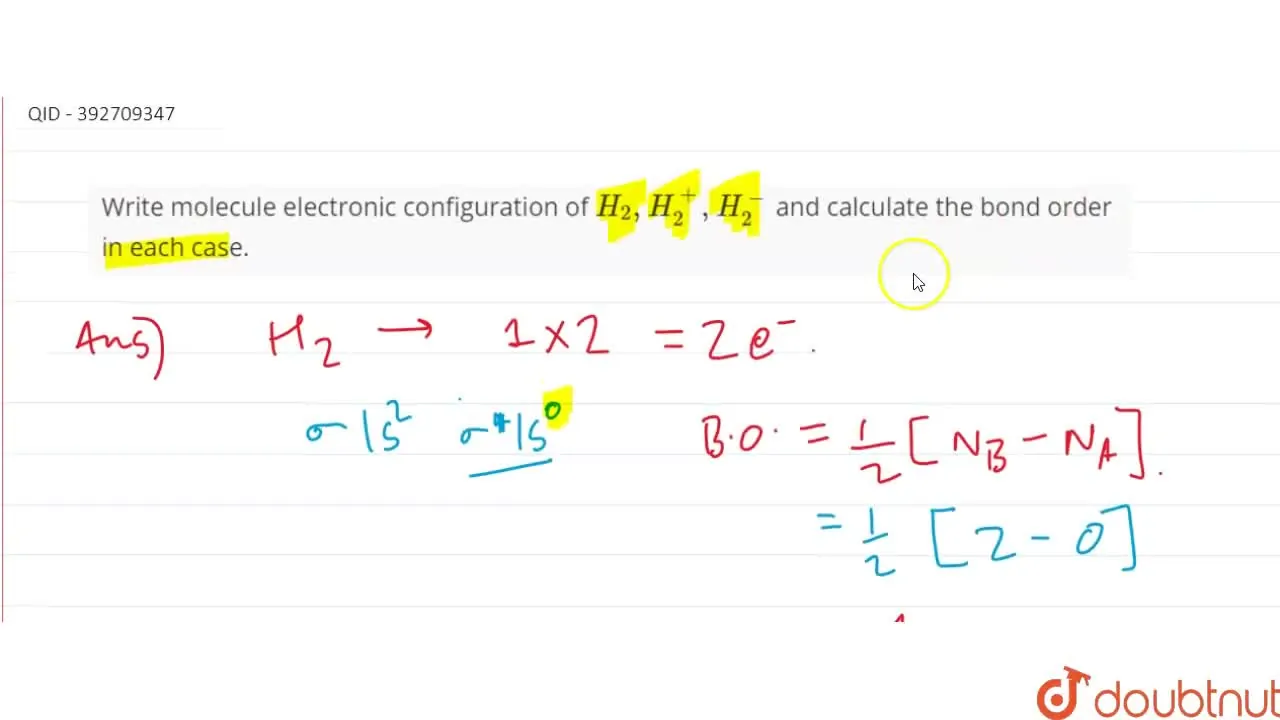 QID - 392709347
Write molecule electronic configuration of H₂, H₂⁺, H₂⁻ and calculate the bond order
in each case.
Ans) H₂ → 1 × 2 = 2e⁻.
σ1s² σ*1s⁰
B.O. = 1/2 [N_B - N_A].
= 1/2 [2 - 0]
doubtnut